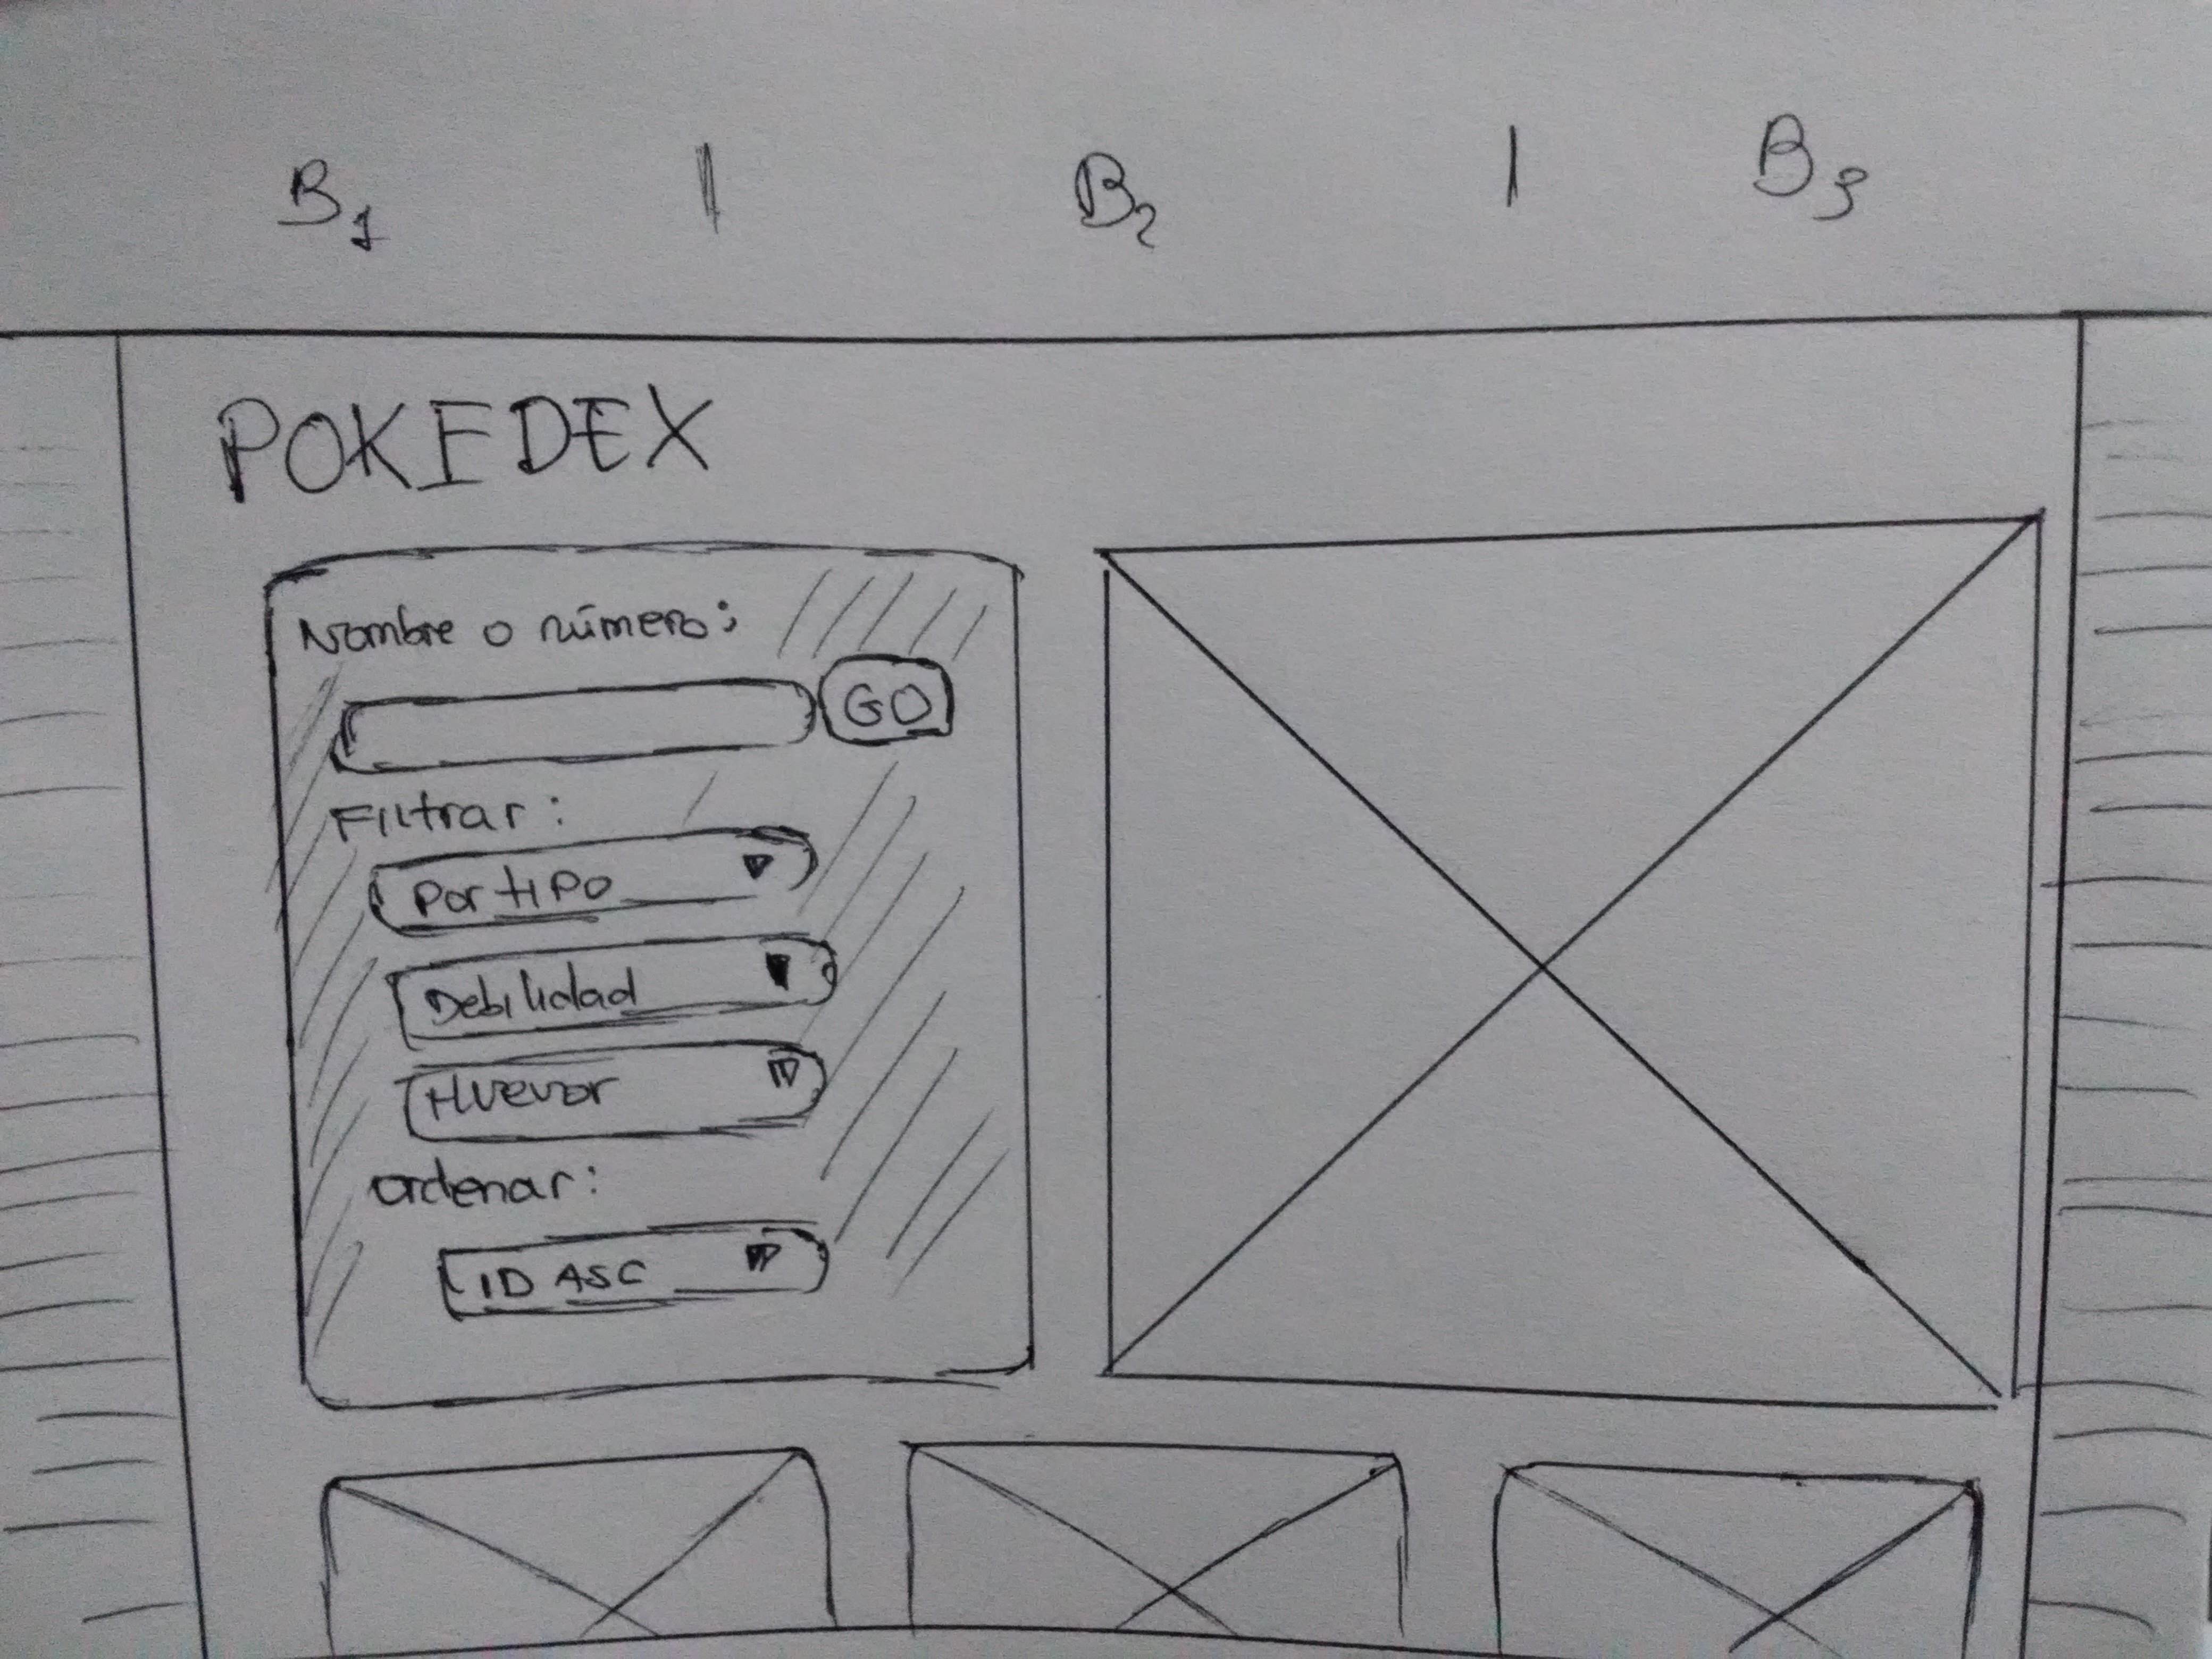 B1 | B2 | B3
POKEDEX
Nombre o número:
GO
Filtrar:
Por tipo
Debilidad
Huevor
ordenar:
ID ASC